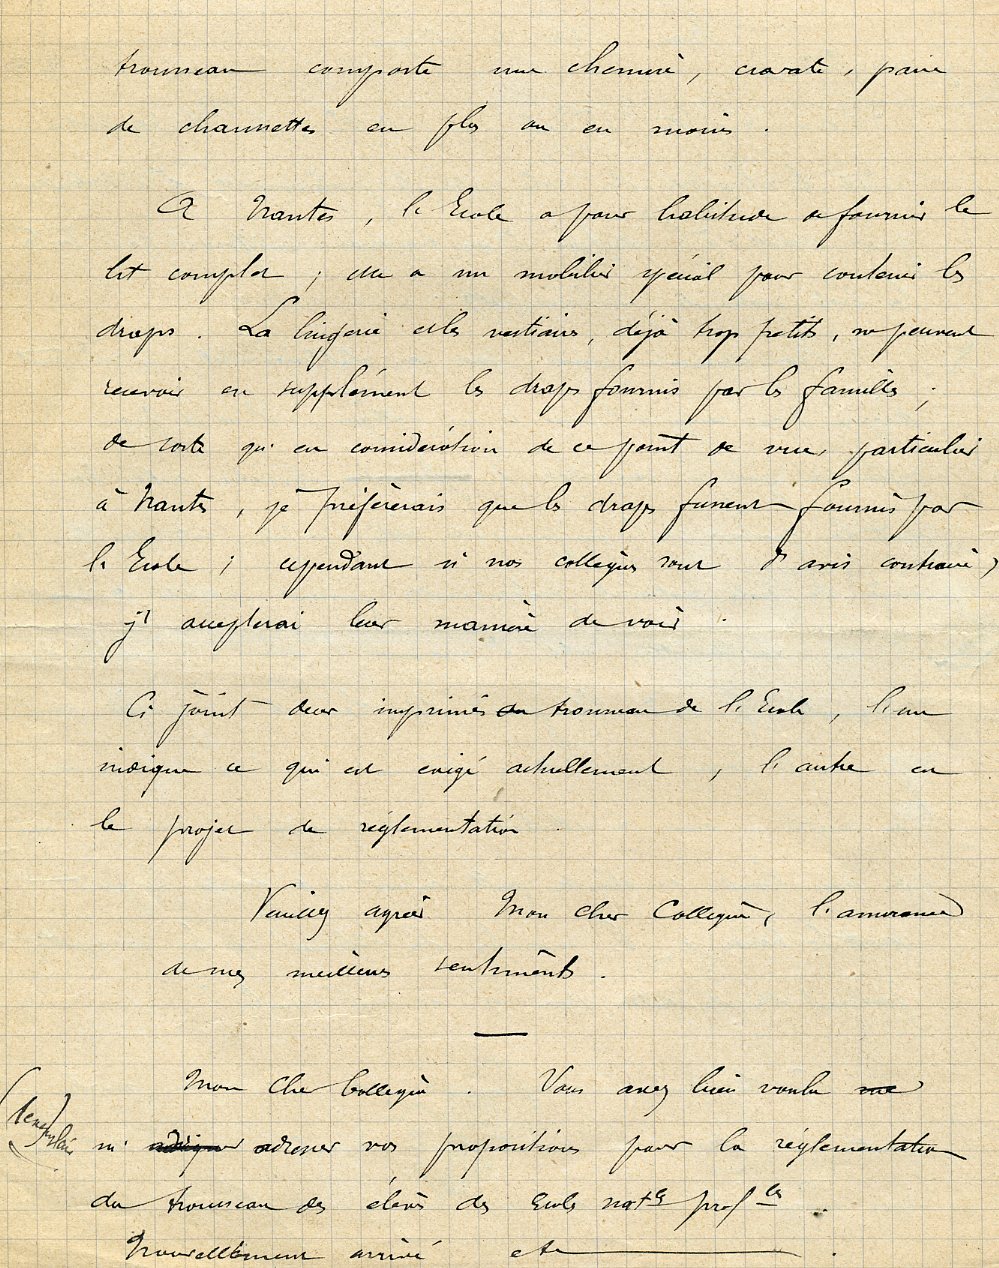 trousseau comporte une chemise, cravate, paire
de chaussettes en plus ou en moins.
A Nantes, l'Ecole a pour habitude de fournir le
lit complet ; elle a un mobilier spécial pour contenir les
draps. La lingerie et les vestiaires, déjà trop petits, ne peuvent
recevoir en supplément les draps fournis par les familles ;
de sorte qu'en considération de ce point de vue, particulier
à Nantes, je préfèrerais que les draps fussent fournis par
l'Ecole ; cependant si nos collègues sont d'avis contraire,
j'accepterai leur manière de voir.
Ci joint deux imprimés du trousseau de l'Ecole, l'un
indique ce qui est exigé actuellement, l'autre est
le projet de réglementation
Veuillez agréer Mon cher Collègue, l'assurance
de mes meilleurs sentiments.
Mon Cher Collègue. Vous avez bien voulu me
(1er exemplaire)
m' adresser vos propositions pour la réglementation
du trousseau des élèves des Ecoles natles profles.
Nouvellement arrivé etc